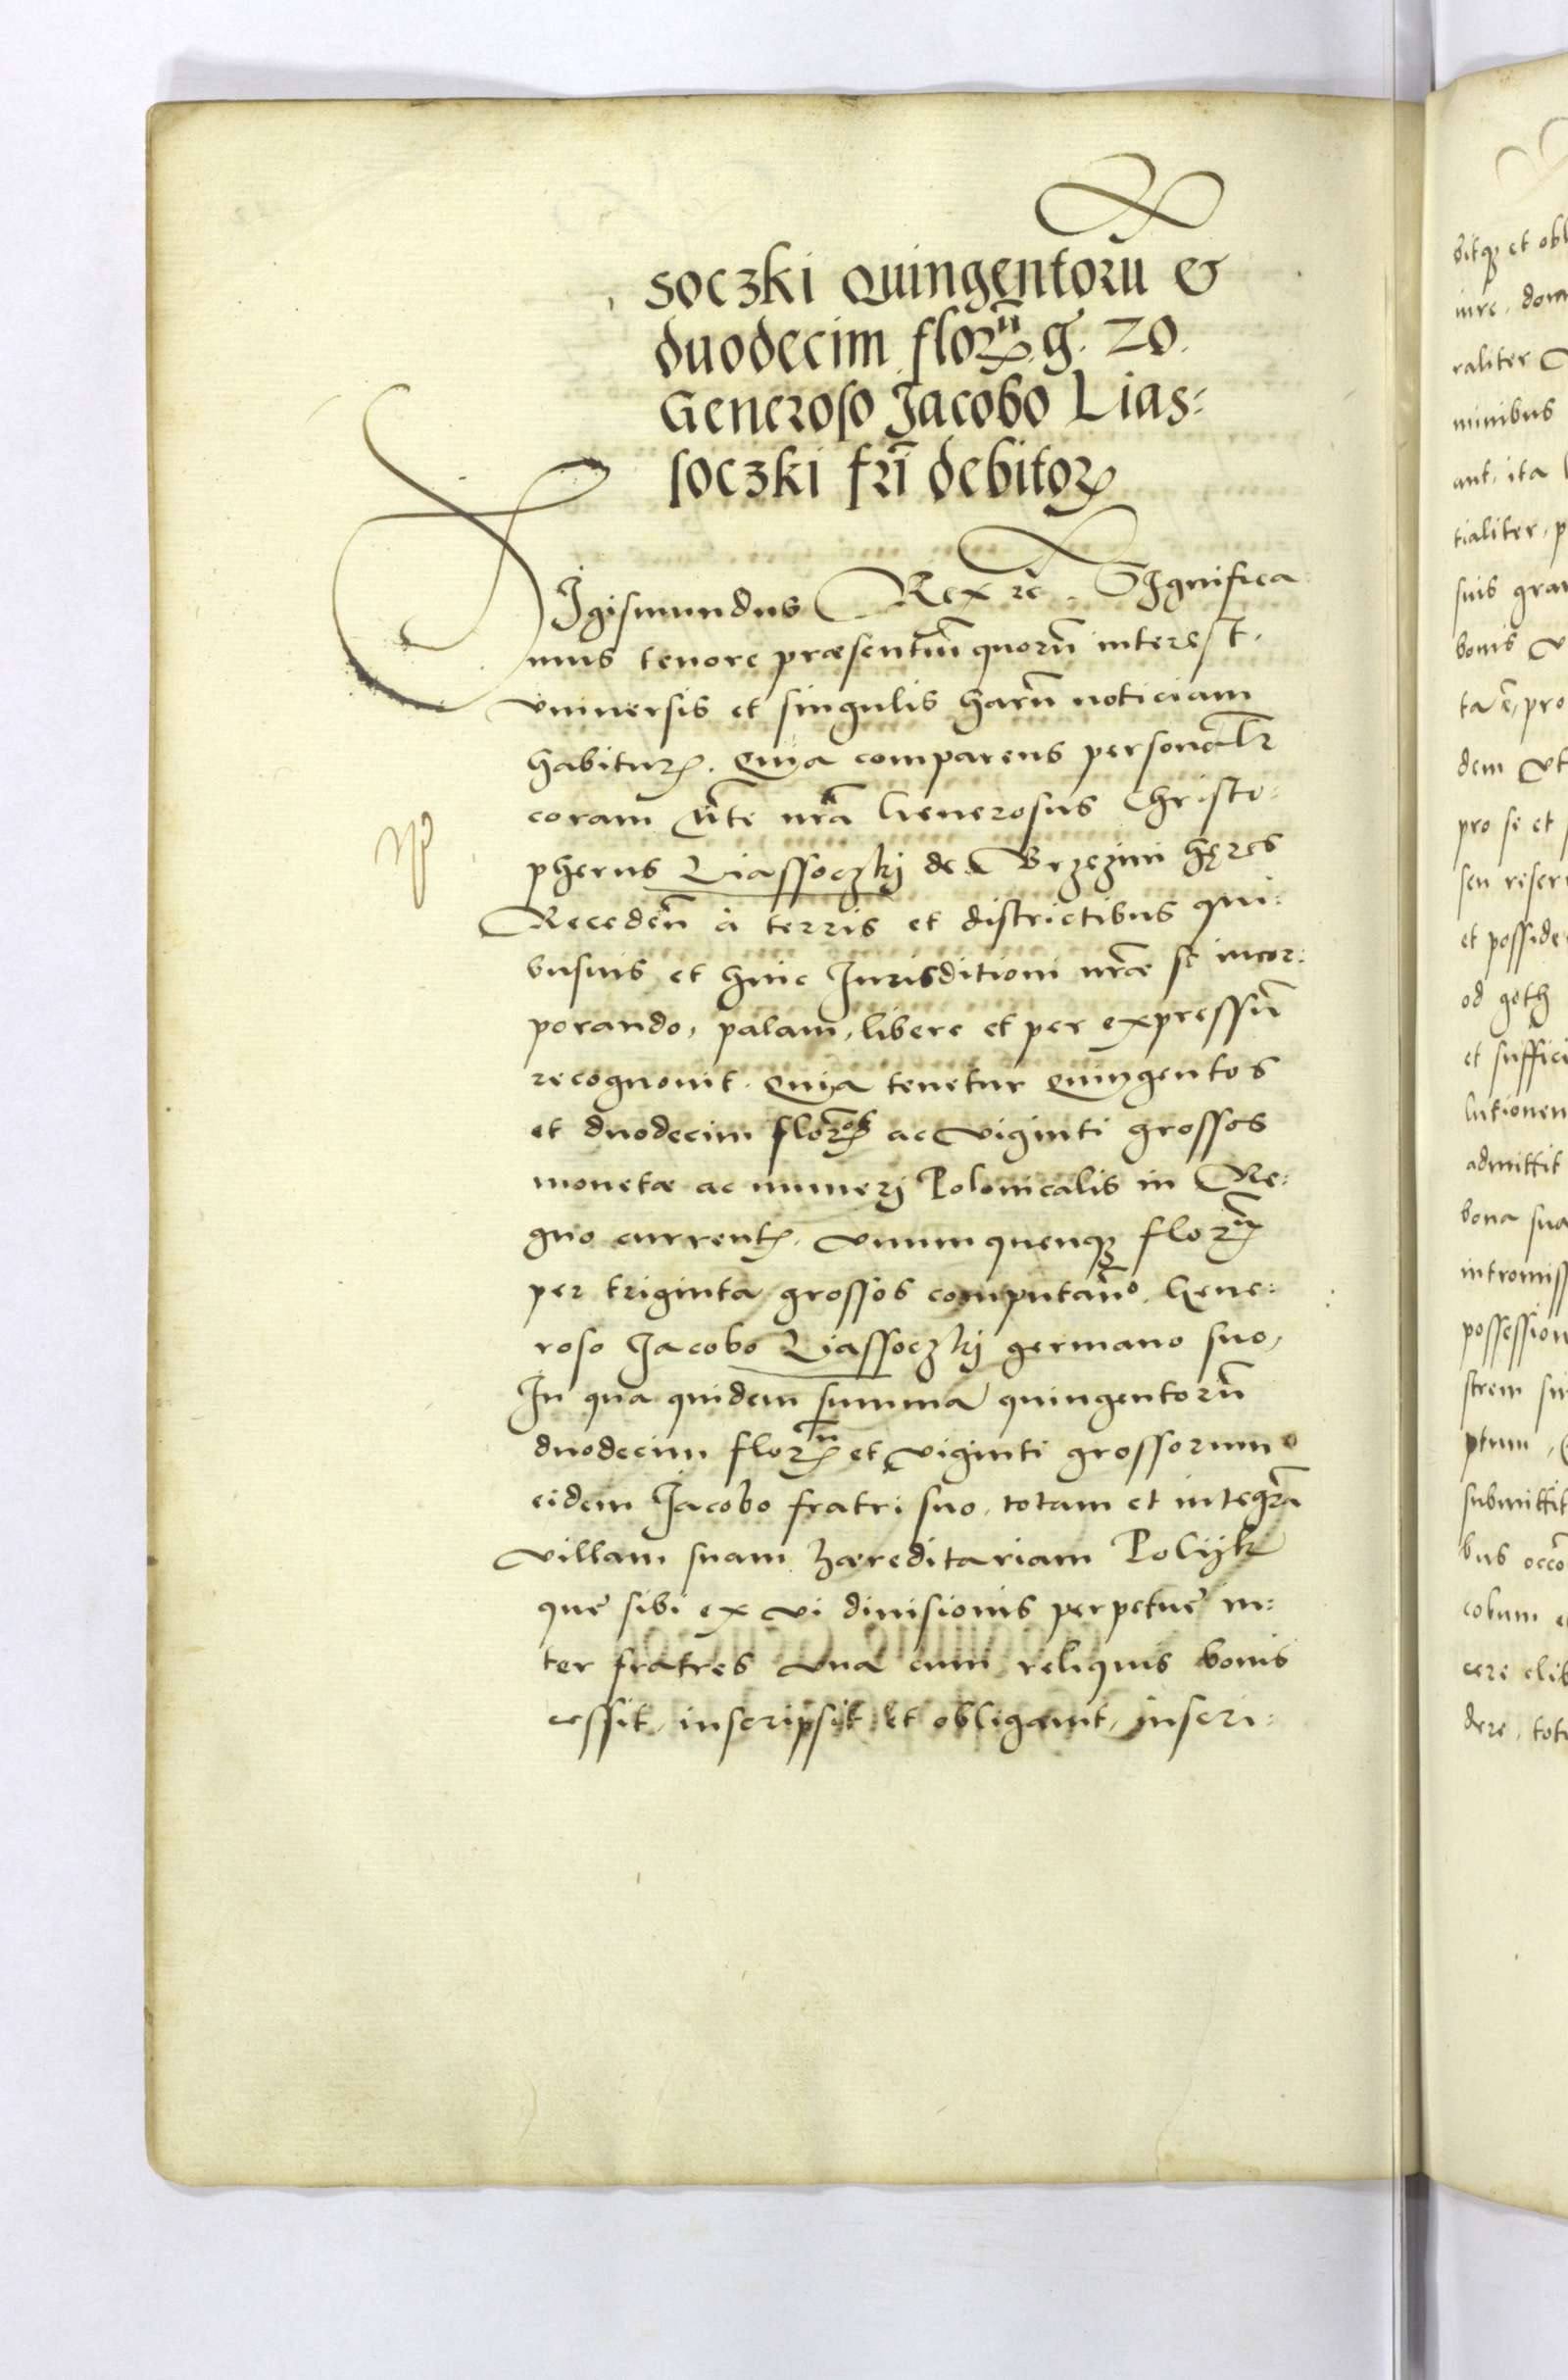 soczki quingentorū &
duodecim florū. g. 20.
Generoso Jacobo Lias:
soczki fri debitorꝝ
SIgismundus Rex rc. SIgnifica
mus tenore præsentiū quorū interest.
vniuersis et singulis harū noticiam
habiturꝝ. Quia comparens personalr
coram nrā Generosus Christo:
pherus Liassoczkij de Brzezini hęres
Recedeñ à terris et districtibus qui:
busuis et huic Jurisditioni nrae se incor:
porando, palam, libere et per expressū
recognouit. Quia tenetur Quingentos
et duodecim florꝝos ac viginti grossos
monetæ ac numerj Polonicalis in Re:
gno currentꝭ. vnum quenqꝫ florꝝ
per triginta grossos computañdo. Gene:
roso Jacobo Liassoczkij germano suo,
In qua quidem summa quingentorū
duodecim florꝝū et viginti grossorum
eidem Jacobo fratri suo. totam et integrā
villam suam hæreditariam Polijk
que sibi ex vi diuisionis perpetue in:
ter fratres vna cum reliquis bonis
cessit, inscripsit et obligauit, inscri:
bitqꝫ et obl
iure, dona
raliter
minibus
ant, ita
tialiter, p
suis gra
bonis
pro
dem
pro se et
seu
et posside
od goth
et suffici
lutionem
admittit
bona sua
intromiss
possession
strem
ptum,
submittit
bus
cobum
cere
dere, tot